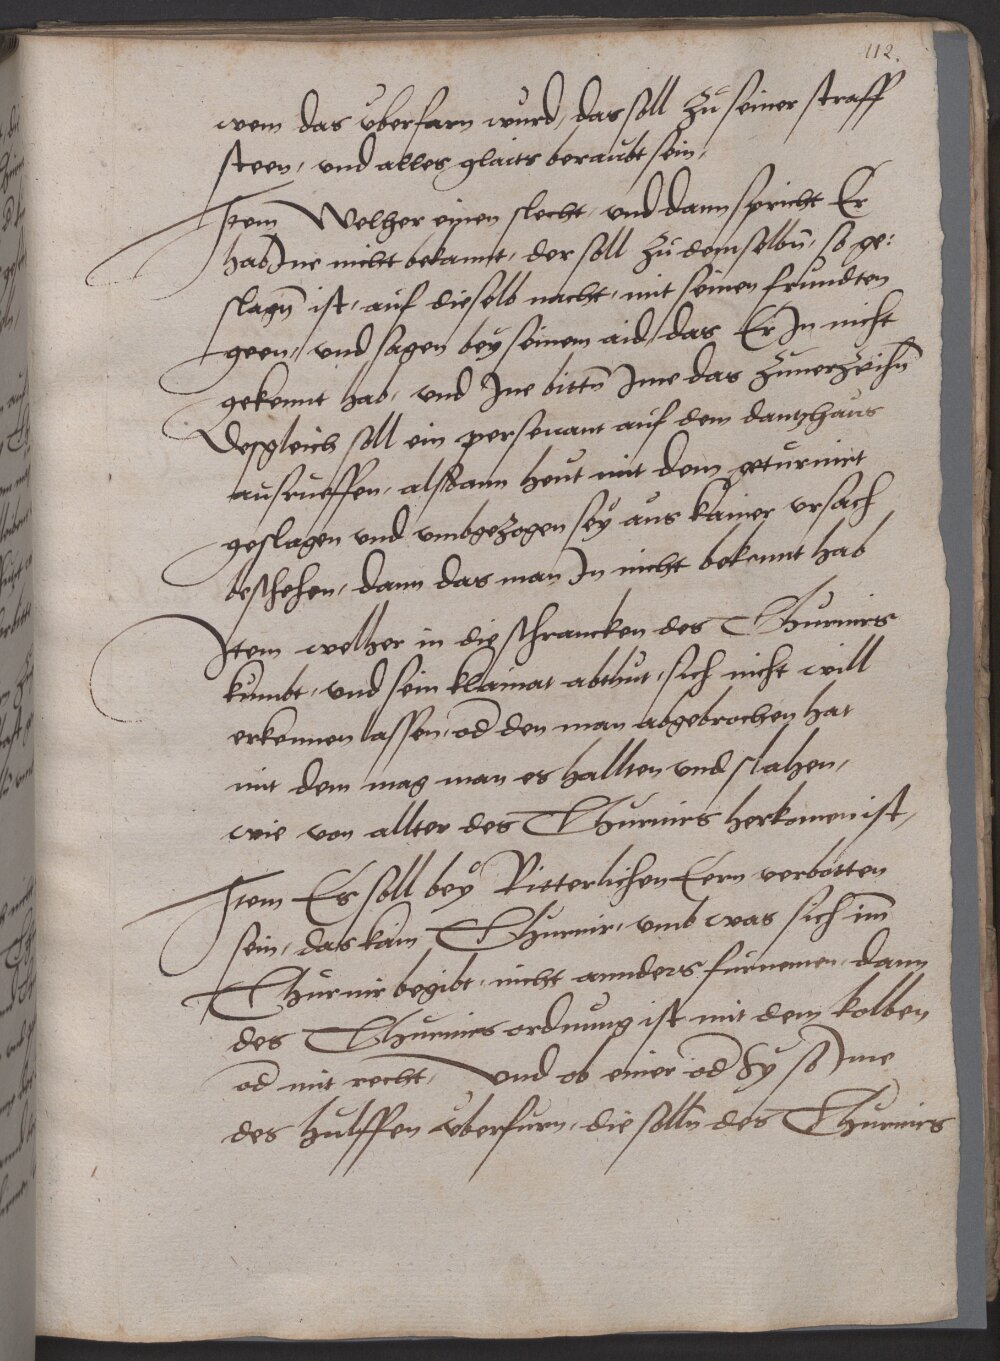 112.
wem das uberfarn wurd, das soll zu seiner straff
steen, und alles glaits beraubt sein,
Item Welher einen slecht, und dann spricht Er
hab Ine nicht bekannt, der soll zu demselbn̄, so ge:
slagn̄ ist, auf dieselb nacht, mit seinen frundten
geen, und sagen bey seinem aid, das Er In nicht
gekennt hab, und Ine bittn̄ Ime das zuuerzeihn̄
Desgleich soll ein persevant auf dem dantzhaus
ausrueffen, alsdann heut mit dem geturnirt
geslagen und umbgezogen sey aus kainer ursach
beschehen, dann das man In nicht bekennt hab
Item welher in die schrancken des Thurnirs
kumbt, und sein klainat abthut, sich nicht will
erkennen lassen, od den man abgebrochen hat
mit dem mag man es hallten und slahen,
wie von allter des Thurnirs herkomen ist,
Item Es soll bey Ritterlichen Eern verbotten
sein, das kain Thurnir, umb was sich im̄
Thurnir begibt, nicht annders furnemen, dann
des Thurnirs ordnung ist mit dem kolben
od mit recht, und ob einer od Sy so Ime
des hulffen uberfurn, die solln̄ des Thurnirs